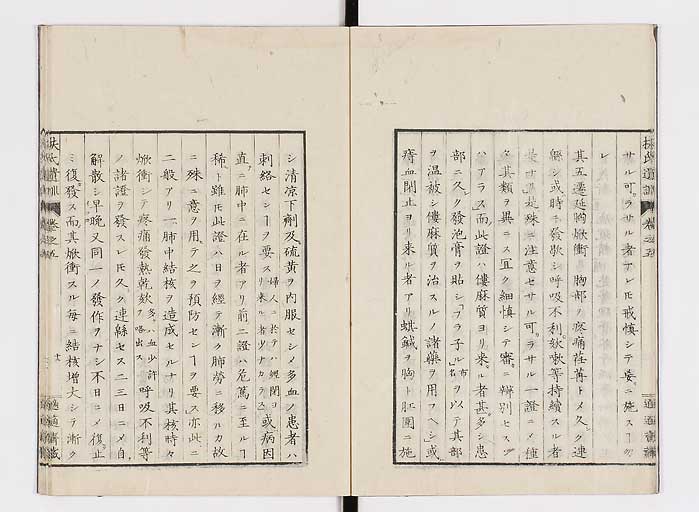 サル可ラサル者ナレ𪜈戒慎シテ妄ニ施スヿ勿
レ
其五遷延胸焮衝 胸部ノ疼痛荏苒トメ久ク連
緜シ或時ニ發歇シ呼吸不利欬嗽等持續スル者
殊ニ注意セサル可ラサル一證ニメ種
々其類ヲ異ニス宜ク細慎シテ審ニ辨別セスヿ
ハアラス而此證ハ僂麻質ヨリ來ル者甚多シ患
部ニ久ク發泡膏ヲ貼シ「フラ子ル」布名ヲ以テ其部
ヲ温被シ僂麻質ヲ治スルノ諸藥ヲ用フヘシ或
痔血閉止ヨリ來ル者アリ蜞鍼ヲ胸ト肛圍ニ施
シ清凉下劑及硫黄ヲ内服セシメ多血ノ患者ハ
刺絡センヿヲ要ス婦人ニ於テハ經閉ヨリ來ル者少ナカラス或病因
直ニ肺中ニ在ル者アリ前二證ハ危篤ニ至ルヿ
稀ト雖𪜈此證ハ日ヲ經テ漸ク肺勞ニ移ル故
ニ殊ニ意ヲ用テ之ヲ預防センヿヲ要ス亦此ニ
二般アリ一肺中結核ヲ造成セルナリ其核時々
焮衝シテ疼痛發熱乾欬多ハ血少許ヲ咯出ス呼吸不利等
ノ諸證ヲ發スレ𪜈久ク連緜セス二三日ニメ自
解散シ早晩又同一ノ發作ヲナシ不日ニメ復止
ミ復發ス而其焮衝スル每ニ結核增大シテ漸ク
扶氏遺訓 卷之五
適適齋藏